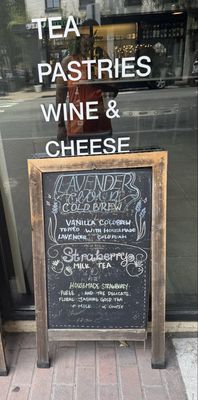 TEA
PASTRIES
WINE &
CHEESE
LAVENDER
COLD BREW
VANILLA COLDBREW
TOPPED WITH HOUSEMADE
LAVENDER COLDFOAM
Straberry
MILK TEA
HOUSEMADE STRAWBERRY
PUREE, AND THE DELICATE,
FLORAL JASMINE GOLD TEA
+ MILK OF COURSE